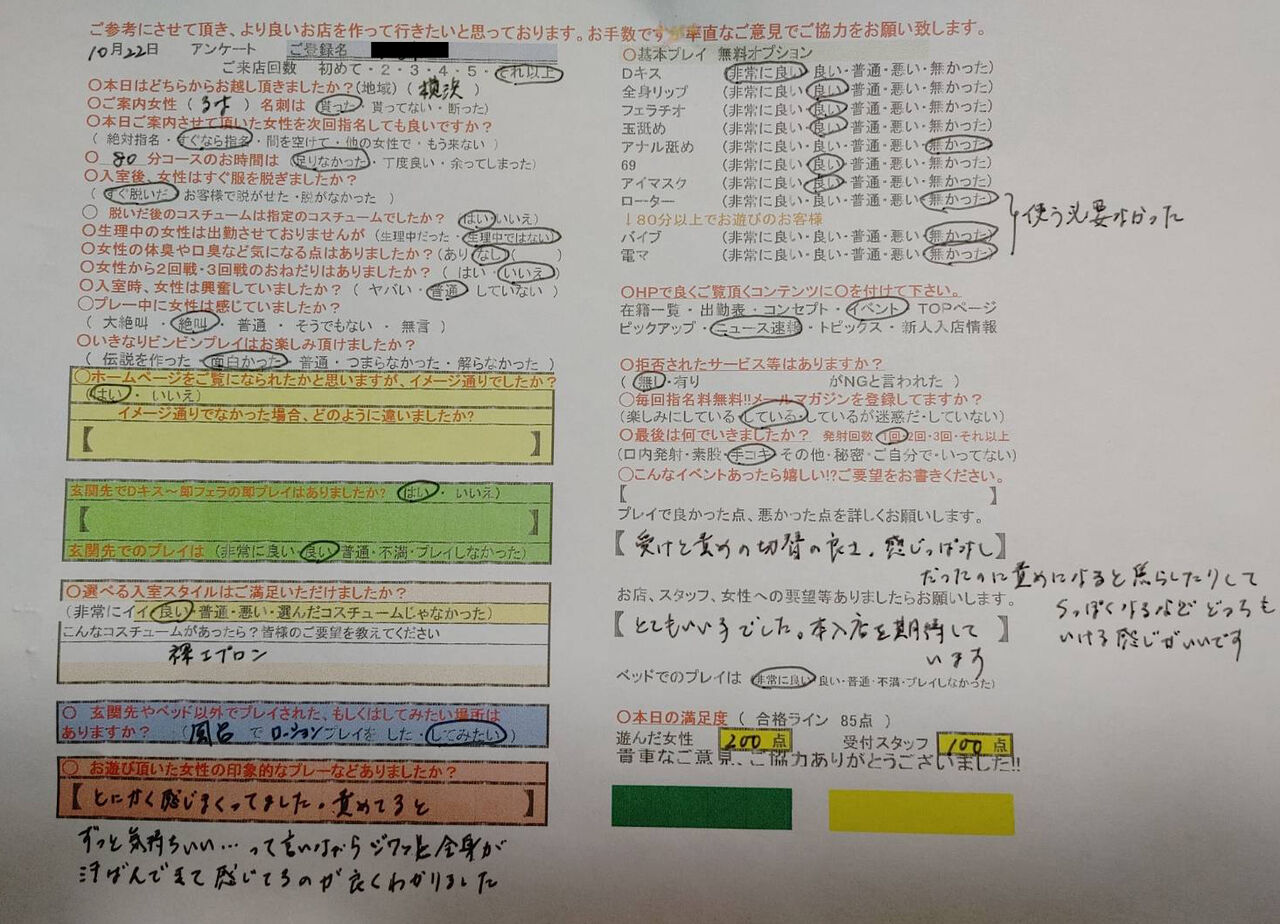 ご参考にさせて頂き、より良いお店を作って行きたいと思っております。お手数ですが率直なご意見でご協力をお願い致します。
10月22日 アンケート ご登録名
ご来店回数 初めて・2・3・4・5・それ以上
〇本日はどちらからお越し頂きましたか?(地域) ( 横浜 )
〇ご案内女性 ( るな ) 名刺は (貰った・貰ってない・断った)
〇本日ご案内させて頂いた女性を次回指名しても良いですか?
( 絶対指名・すぐなら指名・間を空けて・他の女性で・もう来ない )
〇 80 分コースのお時間は (足りなかった・丁度良い・余ってしまった)
〇入室後、女性はすぐ服を脱ぎましたか?
( すぐ脱いだ・お客様で脱がせた・脱がなかった )
〇 脱いだ後のコスチュームは指定のコスチュームでしたか? (はい・いいえ)
〇生理中の女性は出勤させておりませんが (生理中だった・生理中ではない)
〇女性の体臭や口臭など気になる点はありましたか? (あり・なし( )
〇女性から2回戦・3回戦のおねだりはありましたか? ( はい・いいえ )
〇入室時、女性は興奮していましたか? ( ヤバい・普通・していない )
〇プレー中に女性は感じていましたか?
( 大絶叫・絶叫・普通・そうでもない・無言 )
〇いきなりビンビンプレイはお楽しみ頂けましたか?
( 伝説を作った・面白かった・普通・つまらなかった・解らなかった )
〇ホームページをご覧になられたかと思いますが、イメージ通りでしたか?
(はい・いいえ)
イメージ通りでなかった場合、どのように違いましたか?
【 】
玄関先でDキス〜即フェラの即プレイはありましたか? (はい・いいえ)
【 】
玄関先でのプレイは (非常に良い・良い・普通・不満・プレイしなかった)
〇選べる入室スタイルはご満足いただけましたか?
(非常にイイ・良い・普通・悪い・選んだコスチュームじゃなかった)
こんなコスチュームがあったら?皆様のご要望を教えてください
裸エプロン
〇 玄関先やベッド以外でプレイされた、もしくはしてみたい場所は
ありますか? (風呂 で ローションプレイを した・してみたい)
〇 お遊び頂いた女性の印象的なプレーなどありましたか?
【 とにかく感じまくってました。責めてると 】
ずっと気持ちいい…って言いながらジワっと全身が
汗ばんできて感じてるのが良くわかりました
〇基本プレイ 無料オプション
Dキス (非常に良い・良い・普通・悪い・無かった)
全身リップ (非常に良い・良い・普通・悪い・無かった)
フェラチオ (非常に良い・良い・普通・悪い・無かった)
玉舐め (非常に良い・良い・普通・悪い・無かった)
アナル舐め (非常に良い・良い・普通・悪い・無かった)
69 (非常に良い・良い・普通・悪い・無かった)
アイマスク (非常に良い・良い・普通・悪い・無かった)
ローター (非常に良い・良い・普通・悪い・無かった)
↓80分以上でお遊びのお客様
バイブ (非常に良い・良い・普通・悪い・無かった)
電マ (非常に良い・良い・普通・悪い・無かった)
使う必要なかった
〇HPで良くご覧頂くコンテンツに〇を付けて下さい。
在籍一覧・出勤表・コンセプト・イベント・TOPページ
ピックアップ・ニュース速報・トピックス・新人入店情報
〇拒否されたサービス等はありますか?
( 無し・有り がNGと言われた )
〇毎回指名料無料!!メールマガジンを登録してますか?
(楽しみにしている・している・しているが迷惑だ・していない)
〇最後は何でいきましたか? 発射回数 (1回・2回・3回・それ以上
(口内発射・素股・手コキ・その他・秘密・ご自分で・いってない)
〇こんなイベントあったら嬉しい!?ご要望をお書きください。
【 】
プレイで良かった点、悪かった点を詳しくお願いします。
【 受けと責めの切替の良さ。感じっぱなし 】
だったのに責めになると焦らしたりして
Sっぽくなるなどどっちも
いける感じがいいです
お店、スタッフ、女性への要望等ありましたらお願いします。
【 とてもいい子でした。本入店を期待して 】
います
ベッドでのプレイは (非常に良い・良い・普通・不満・プレイしなかった)
〇本日の満足度 ( 合格ライン 85点 )
遊んだ女性 200 点 受付スタッフ 100 点
貴重なご意見、ご協力ありがとうございました!!